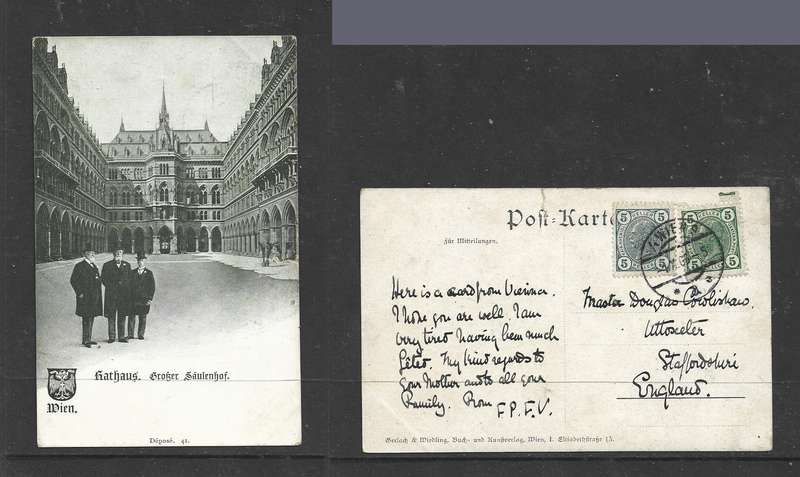 Rathaus. Großer Säulenhof.
Wien.
Déposé. 41.
Post-Karte
Für Mitteilungen.
5 5
5 5
5 5
5 5
WIEN
Here is a card from Vienna.
I hope you are well. I am
very tired having been much
feted. My kind regards to
your Mother and to all your
Family. From F.P.F.V.
Master Douglas Cowlishaw,
Uttoxeter
Staffordshire
England.
Gerlach & Wiedling, Buch- und Kunstverlag, Wien, I. Elisabethstraße 13.